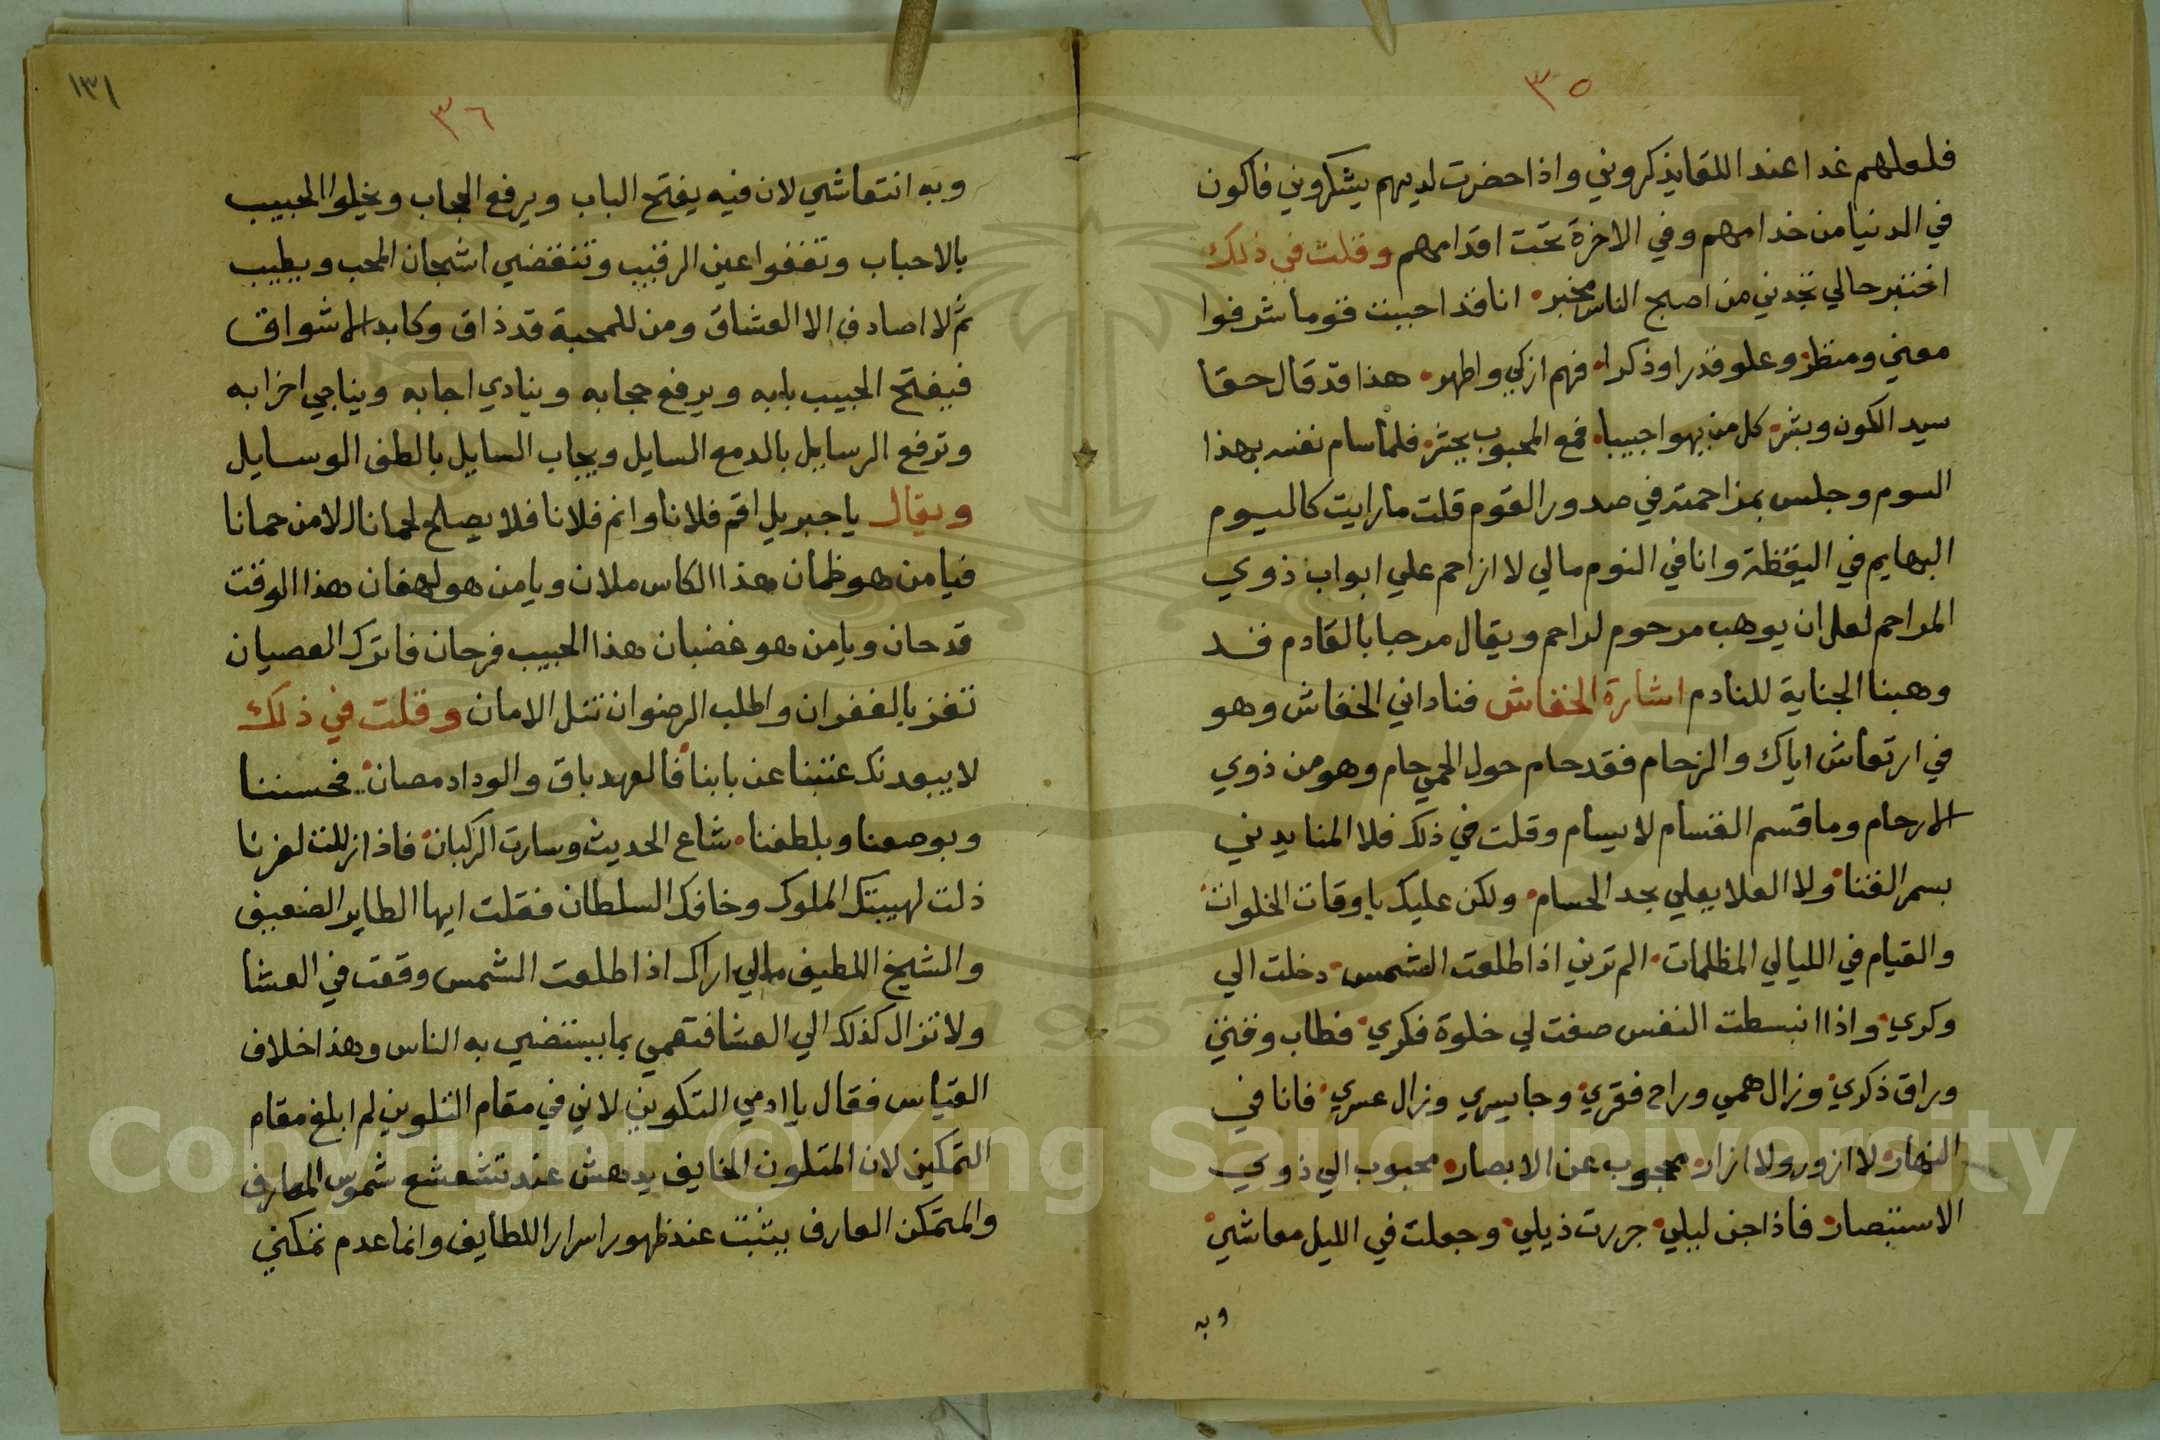 ٣٥
فلعلهم غدا عند اللقا يذكروني واذا حضرت لديهم يشكروني فاكون
في الدنيا من خدامهم وفي الاخرة تحت اقدامهم وقلت في ذلك
اختبر حالي تجدني من اصبح الناس مخبر انا قد احببت قوما شرفوا
معني ومنظر وعلو قدرا وذكرا فهم ازكي واطهر هذا قد قال حقا
سيد الكون وبشر كل من يهوا حبيبا فمع المحبوب يحشر فلما سام نفسه بهذا
السوم وجلس بمزاحمته في صدور القوم قلت ما رايت كاليوم
البهايم في اليقظة وانا في النوم مالي لا ازاحم علي ابواب ذوي
المراحم لعل ان يوهب مرحوم لراحم ويقال مرحبا بالقادم قد
وهبنا الجناية للنادم اشارة الخفاش فناداني الخفاش وهو
في ارتعاش اياك والزحام فقد حام حول الحمي حام وهو من ذوي
الارحام وما قسم القسام لا يسام وقلت في ذلك فلا المنا يدني
بسمر القنا ولا العلا يعلي بحد الحسام ولكن عليك باوقات الخلوات
والقيام في الليالي المظلمات الم ترني اذا طلعت الشمس دخلت الي
وكري واذا انبسطت النفس صفت لي خلوة فكري فطاب وقتي
وراق ذكري وزال همي وراح فقري وجا يسري وزال عسري فانا في
النهار لا ازور ولا ازار محجوب عن الابصار محبوب الي ذوي
الاستبصار فاذا جن ليلي جررت ذيلي وجعلت في الليل معاشي
وبه
١٣١
٣٦
وبه انتعاشي لان فيه يفتح الباب ويرفع الحجاب ويخلوا الحبيب
بالاحباب وتغفوا عين الرقيب وتنقضي اشجان المحب ويطيب
ثم لا اصادف الا العشاق ومن للمحبة قد ذاق وكابد الاشواق
فيفتح الحبيب بابه ويرفع حجابه وينادي احبابه ويناجي احزابه
وترفع الرسايل بالدمع السايل ويجاب السايل بالطف الوسايل
ويقال يا جبريل اقم فلانا وانم فلانا فلا يصلح لحمانا الا من حمانا
فيا من هو ظمان هذا الكاس ملان ويا من هو لهفان هذا الوقت
قد حان ويا من هو غضبان هذا الحبيب فرحان فاترك العصيان
تفز بالغفران واطلب الرضوان تنل الامان وقلت في ذلك
لا يبعدنك عتبنا عن بابنا فالعهد باق والوداد مصان فحسننا
وبوصفنا وبلطفنا شاع الحديث وسارت الركبان فاذا زللت لعزنا
ذلت لهيبتك الملوك وخافك السلطان فقلت ايها الطاير الضعيف
والشيخ اللطيف مالي اراك اذا طلعت الشمس وقعت في العشا
ولا تزال كذلك الي العشا فتعمي بما يستضي به الناس وهذا خلاف
القياس فقال يا ادمي التكوين لاني في مقام التلوين لم ابلغ مقام
التمكين لان المتلون الخايف يدهش عند تشعشع شموس المعارف
والمتمكن العارف يثبت عند ظهور اسرار اللطايف وانما عدم تمكني